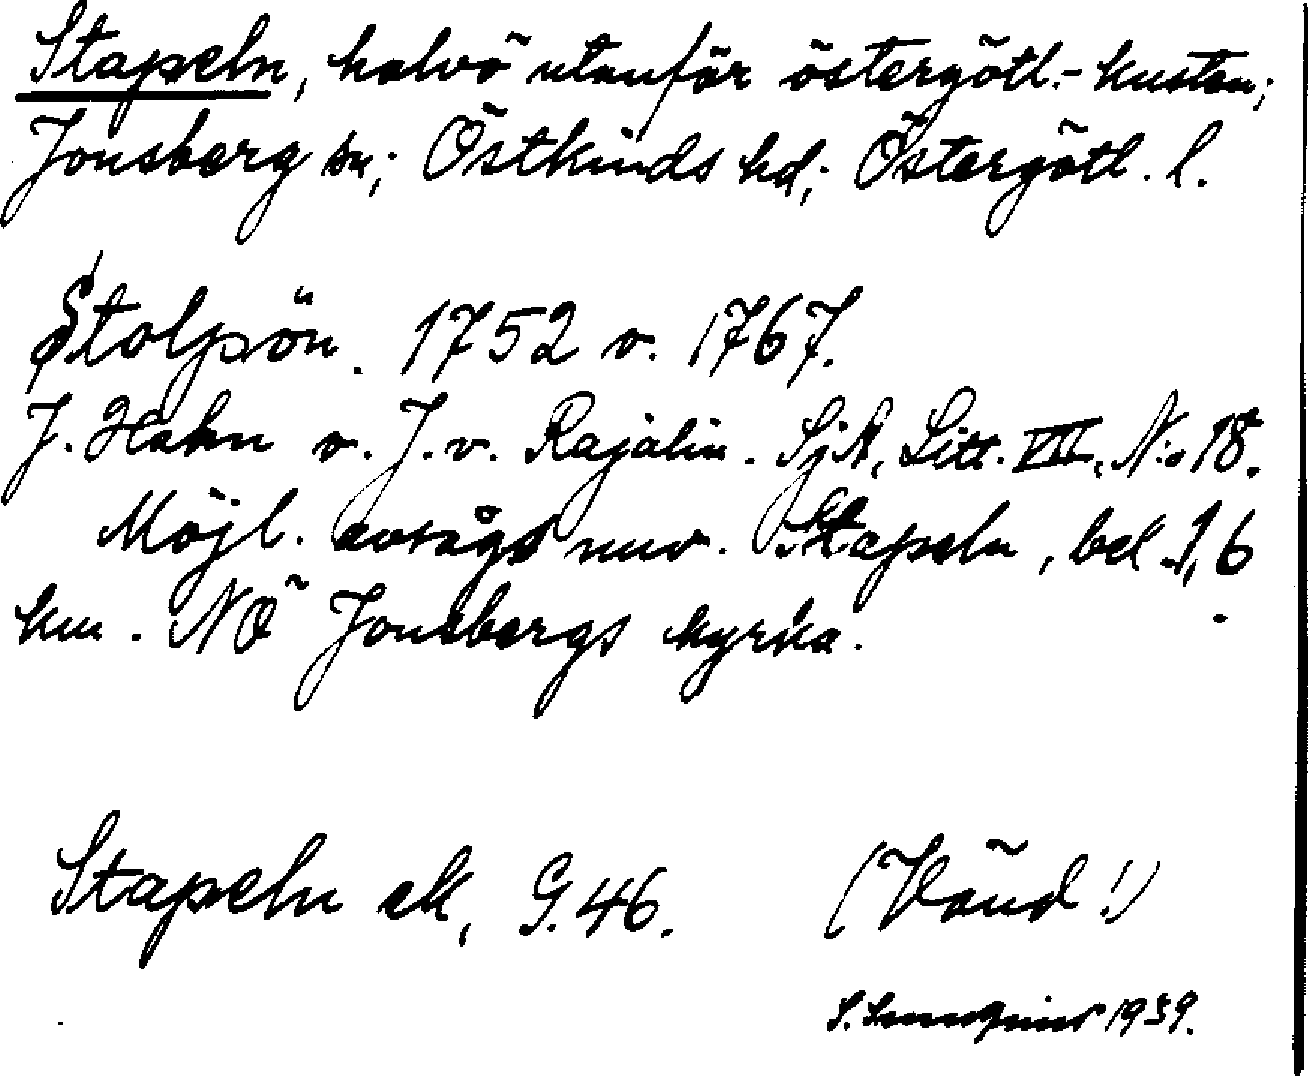 Stapeln, halvö utanför östergötl.-kusten;
Jonsberg sn; Östkinds hd; Östergötl. l.
Stolpön. 1752 o. 1767.
J. Hahn o. J. v. Rajalin. SjK, Litt. VIII, N:o 18.
Möjl. avsågs nuv. Stapeln, bel. 1,6
km. NÖ Jonsbergs kyrka.
Stapeln ek, G. 46. (Vänd!)
S. 1939.